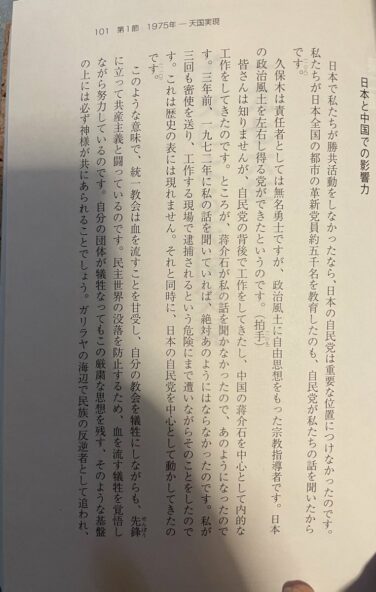 101 第1節 1975年 ― 天国実現
日本と中国での影響力
日本で私たちが勝共活動をしなかったなら、日本の自民党は重要な位置につけなかったのです。
私たちが日本全国の都市の革新党員約五千名を教育したのも、自民党が私たちの話を聞いたから
です。
久保木は責任者としては無名勇士ですが、政治風土に自由思想をもった宗教指導者です。日本
の政治風土を左右し得る党ができたというのです。(拍手)
皆さんは知りませんが、自民党の背後で工作をしてきたし、中国の蒋介石を中心として内的な
工作をしてきたのです。ところが、蒋介石が私の話を聞かなかったので、あのようになったので
す。三年前、一九七二年に私の話を聞いていれば、絶対あのようにはならなかったのです。私が
三回も密使を送り、工作する現場で逮捕されるという危険にまで遭いながらそのことをしたので
す。これは歴史の表には現れません。それと同時に、日本の自民党を中心として動かしてきたの
です。
このような意味で、統一教会は血を流すことを甘受し、自分の教会を犠牲にしながらも、先鋒
に立って共産主義と闘っているのです。民主世界の没落を防止するため、血を流す犠牲を覚悟し
ながら努力しているのです。自分の団体が犠牲になってもこの厳粛な思想を残す、そのような基盤
の上には必ず神様が共にあられることでしょう。ガリラヤの海辺で民族の反逆者として追われ、